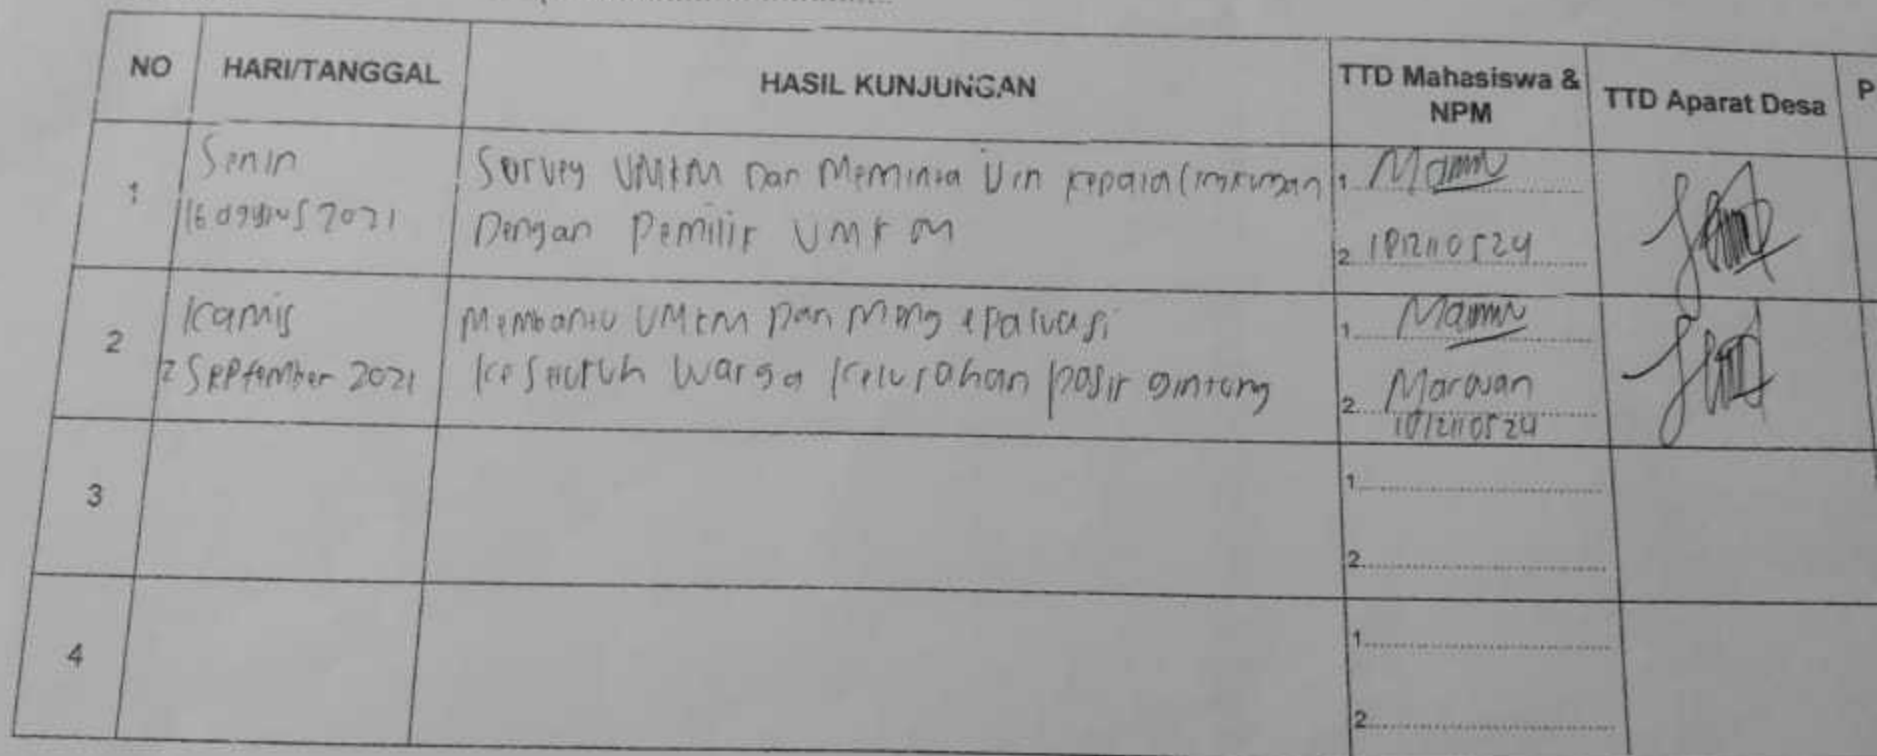 NO HARI/TANGGAL HASIL KUNJUNGAN TTD Mahasiswa & NPM TTD Aparat Desa P
1 Senin
16 agustus 2021
Survey UMKM Dan Meminta izin kepala lingkungan
Dengan Pemilik UMKM
1.
2. 1812110524
2 Kamis
2 September 2021
Membantu UMKM Dan Meng
Keseluruh Warga Kelurahan pasir gintung
1.
2. Marwan
1812110524
3
1.
2.
4
1.
2.